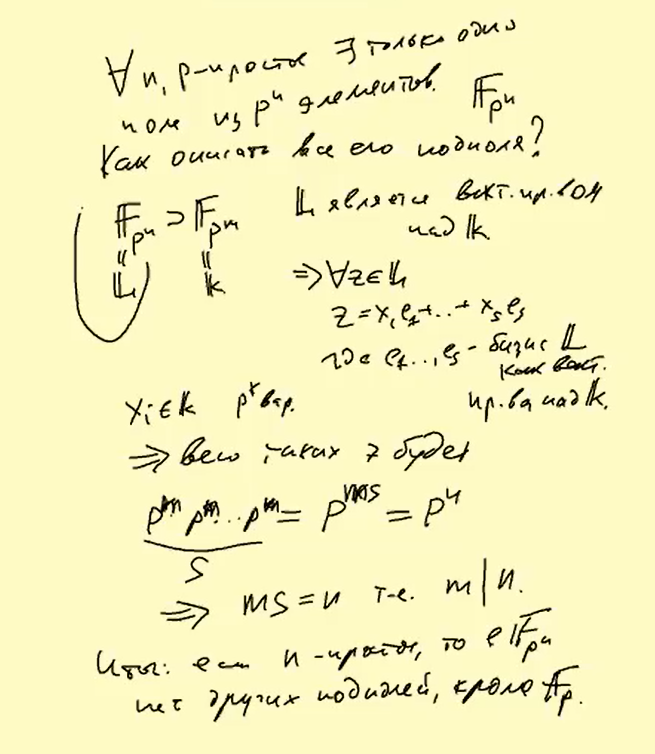 ∀ n, p-простое ∃ только одно
поле из pⁿ элементов. 𝔽_{pⁿ}
Как описать все его подполя?
𝔽_{pⁿ} ⊃ 𝔽_{pᵐ} 𝕃 является вект. пр. вом
над 𝕜
= =
𝕃 𝕜 ⇒ ∀z∈𝕃
z = x₁e₁+..+ x_s e_s
где e₁..,e_s - базис 𝕃
как вект.
xᵢ∈𝕜 вар. пр. ва над 𝕜.
⇒ всего таких z будет
pᵐ pᵐ..pᵐ = p^{ms} = pⁿ
s
⇒ ms = n т.е. m | n.
Итог: если n - простое, то в 𝔽_{pⁿ}
нет других подполей, кроме 𝔽_p.